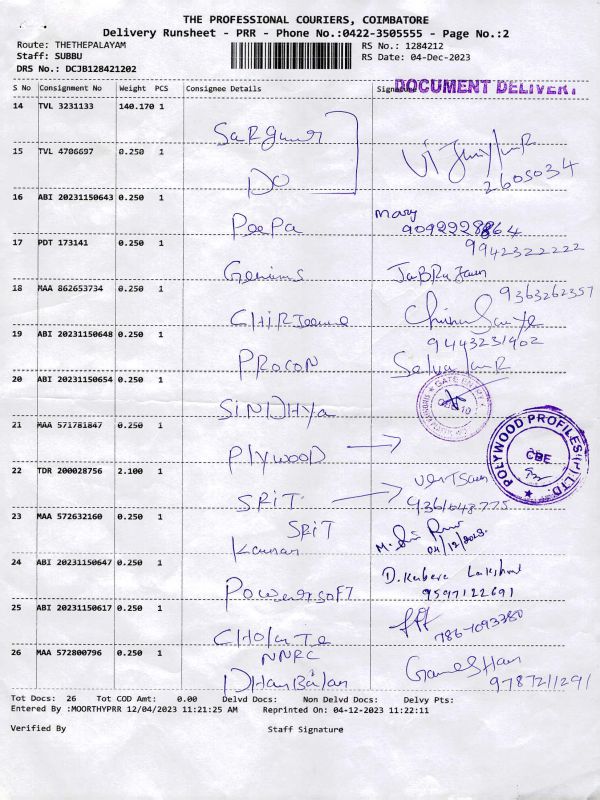 THE PROFESSIONAL COURIERS, COIMBATORE
Delivery Runsheet - PRR - Phone No.:0422-3505555 - Page No.:2
Route: THETHEPALAYAM
RS No.: 1284212
Staff: SUBBU
RS Date: 04-Dec-2023
DRS No.: DCJB128421202
DOCUMENT DELIVERY
S No Consignment No Weight PCS Consignee Details Signature
14 TVL 3231133 140.170 1
15 TVL 4706697 0.250 1
DO
2605034
16 ABI 20231150643 0.250 1
PeePa
Mary
17 PDT 173141 0.250 1
9942322222
18 MAA 862653734 0.250 1
9363262357
19 ABI 20231150648 0.250 1
PROCON
9443231402
20 ABI 20231150654 0.250 1
SINDHya
GATE ENTRY
21 MAA 571781847 0.250 1
PlywOOD
POLYWOOD PROFILES (P) LTD
CBE
22 TDR 200028756 2.100 1
SRIT
23 MAA 572632160 0.250 1
SRIT
04/12/2023
24 ABI 20231150647 0.250 1
PowerSoFT
9597122691
25 ABI 20231150617 0.250 1
26 MAA 572800796 0.250 1
NNRC
DHanBalan
9787211291
Tot Docs: 26 Tot COD Amt: 0.00 Delvd Docs: Non Delvd Docs: Delvy Pts:
Entered By :MOORTHYPRR 12/04/2023 11:21:25 AM Reprinted On: 04-12-2023 11:22:11
Verified By Staff Signature